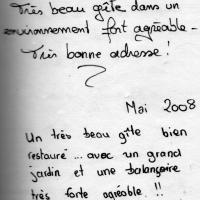 Très beau gîte dans un
environnement fort agréable -
Très bonne adresse !
Mai 2008
Un très beau gîte bien
restauré ... avec un grand
jardin et une balançoire
très forte agréable !!